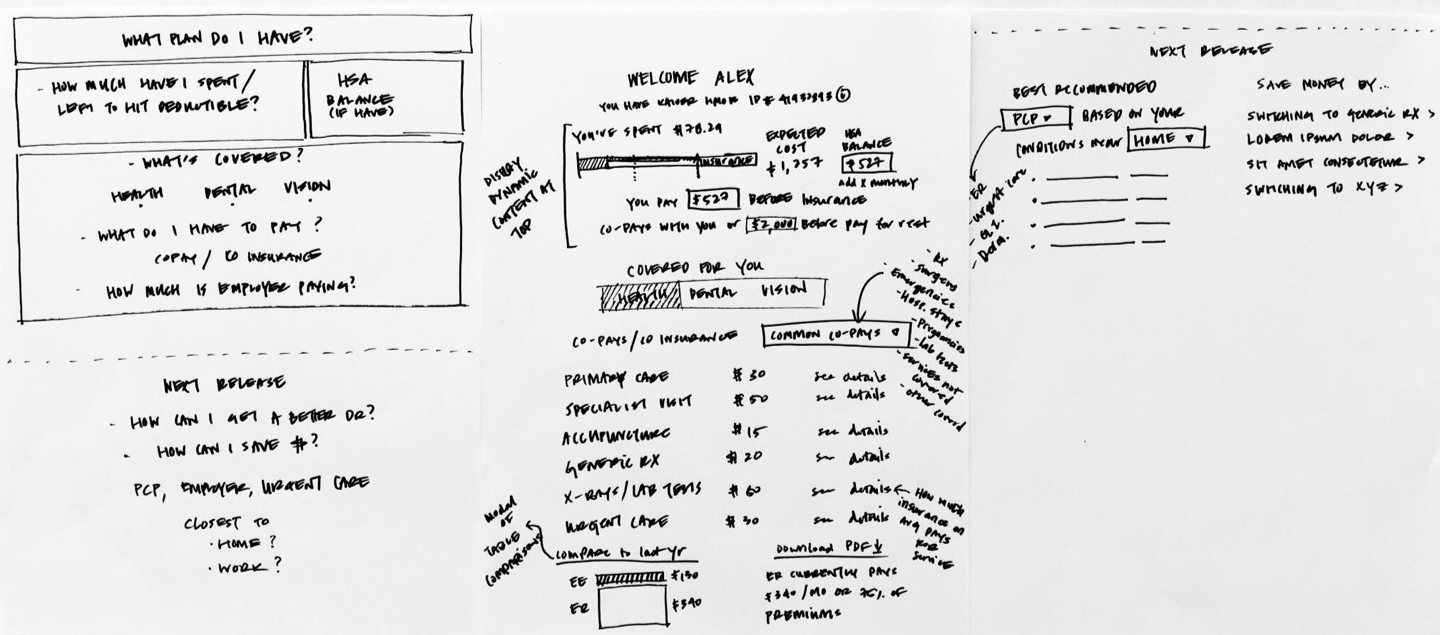 WHAT PLAN DO I HAVE?
- HOW MUCH HAVE I SPENT/
LEFT TO HIT DEDUCTIBLE?
HSA
BALANCE
(IF HAVE)
- WHAT'S COVERED?
HEALTH DENTAL VISION
- WHAT DO I HAVE TO PAY?
COPAY / CO INSURANCE
- HOW MUCH IS EMPLOYER PAYING?
NEXT RELEASE
- HOW CAN I GET A BETTER DR?
- HOW CAN I SAVE $?
PCP, EMPLOYER, URGENT CARE
CLOSEST TO
· HOME?
· WORK?
WELCOME ALEX
YOU HAVE KAISER HMO ID#
DISPLAY
DYNAMIC
CONTENT AT
TOP
YOU'VE SPENT $78.29
INSURANCE
EXPECTED
COST
$1,257
HSA
BALANCE
$527
add x monthly
YOU PAY $527 BEFORE Insurance
CO-PAYS WITH YOU or $2,000 Before pay for rest
COVERED FOR YOU
HEALTH DENTAL VISION
CO-PAYS/CO INSURANCE COMMON CO-PAYS
- RX
- surgery
- Emergencies
- Hosp. stays
- Pregnancies
- Lab tests
- services not
covered
- other covered
PRIMARY CARE $30 see details
SPECIALIST VISIT $50 see details
ACCUPUNCTURE $15 see details
GENERIC RX $20 see details
X-RAYS/LAB TESTS $60 see details
URGENT CARE $30 see details
How much
insurance on
Avg pays
for
service
Modal
OF
TABLE
COMPARISONS
COMPARE to last yr
EE $130
ER $340
Download PDF
ER CURRENTLY PAYS
$340/MO OR 75% OF
PREMIUMS
NEXT RELEASE
BEST RECOMMENDED
PCP BASED ON YOUR
CONDITIONS near HOME
- ER
- urgent care
- Derm.
SAVE MONEY BY...
SWITCHING TO GENERIC RX >
LOREM IPSUM DOLOR >
SIT AMET CONSECTETUR >
SWITCHING TO XYZ >